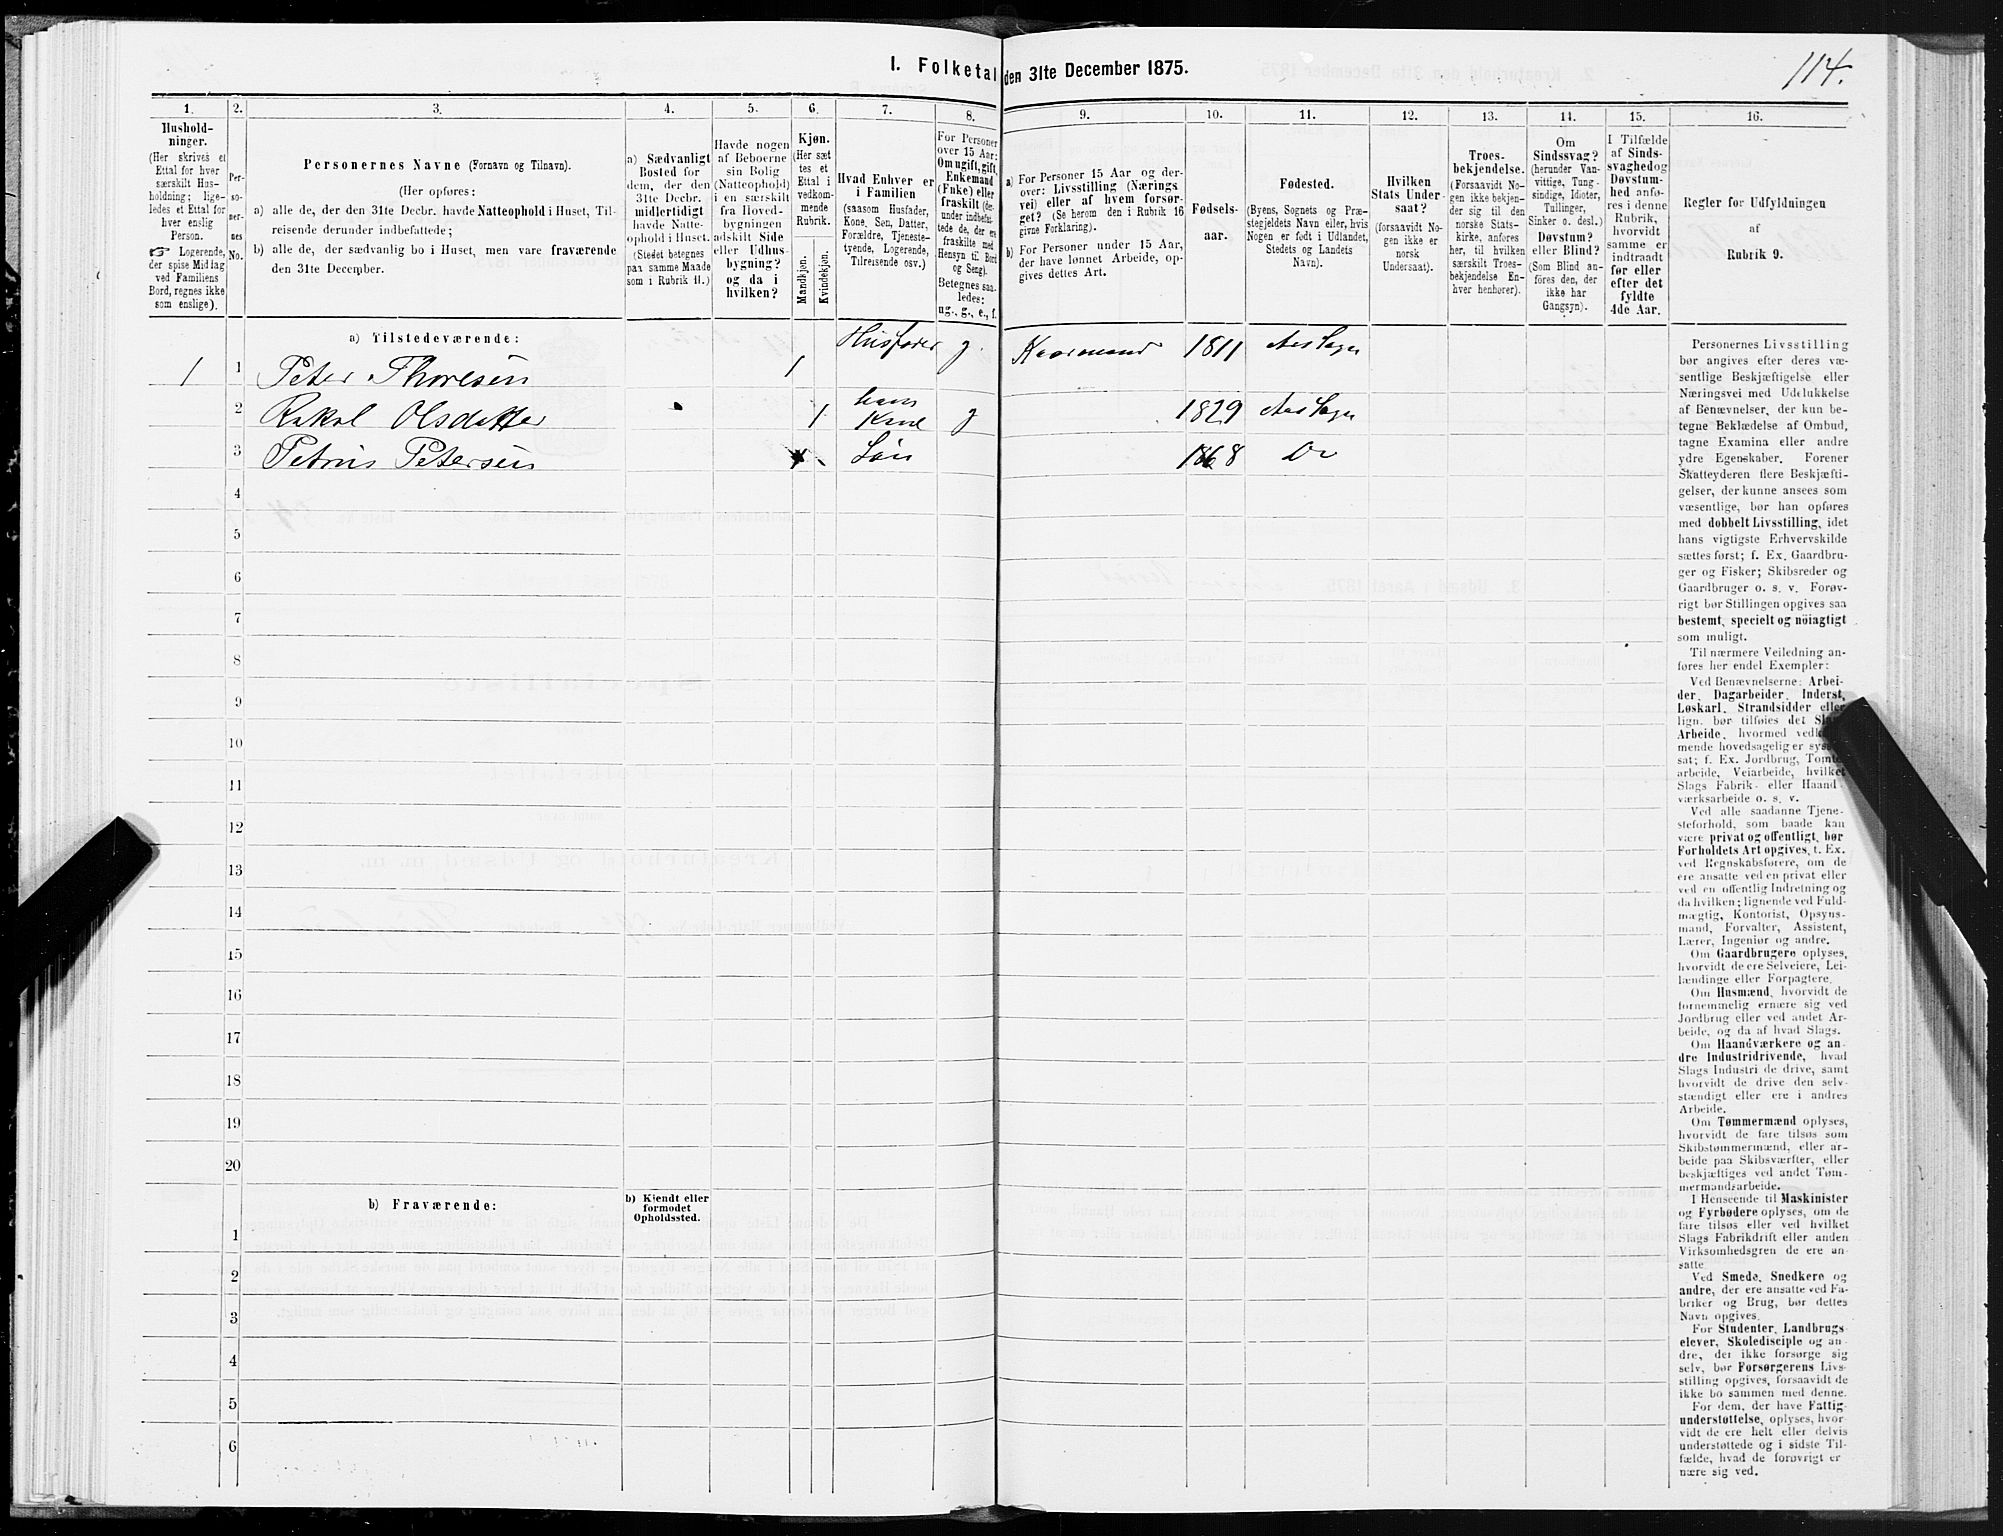 I. Folketal den 31te December 1875.
114.
1. 2. 3. 4. 5. 6. 7. 8. 9. 10. 11. 12. 13. 14. 15. 16.
Hushold-
ninger.
(Her skrives et
Ettal for hver
særskilt Hus-
holdning; lige-
ledes et Ettal for
hver enslig
Person.
☞ Logerende,
der spise Middag
ved Familiens
Bord, regnes ikke
som enslige).
Per-
so-
ner-
nes
No.
Personernes Navne (Fornavn og Tilnavn).
(Her opføres:
a) alle de, der den 31te Decbr. havde Natteophold i Huset, Til-
reisende derunder indbefattede;
b) alle de, der sædvanlig bo i Huset, men vare fraværende
den 31te December.
a) Sædvanligt
Bosted for
dem, der den
31te Decbr.
midlertidigt
havde Natte-
ophold i Huset.
(Stedet betegnes
paa samme Maade
som i Rubrik 11.)
Havde nogen
af Beboerne
sin Bolig
(Natteophold)
i en særskilt
fra Hoved-
bygningen
adskilt Side
eller Udhus-
bygning?
og da i
hvilken?
Kjøn.
(Her sæt
tes et
Ettal i
vedkom-
mende
Rubrik.
Mandkjøn.
Kvindekjøn.
Hvad Enhver er
i Familien
(saasom Husfader,
Kone, Søn, Datter,
Forældre, Tjeneste-
tyende, Logerende,
Tilreisende osv.)
For Personer
over 15 Aar:
Om ugift, gift,
Enkemand
(Enke) eller
fraskilt (der-
under indbefat-
tede de, der ere
fraskilte med
Hensyn til Bord
og Seng).
Betegnes saa-
ledes:
ug., g., e., f.
a) For Personer 15 Aar og der-
over: Livsstilling (Nærings
vei) eller af hvem forsør-
get? (Se herom den i Rubrik 16
givne Forklaring).
b) For Personer under 15 Aar,
der have lønnet Arbeide, op-
gives dettes Art.
Fødsels-
aar.
Fødested.
(Byens, Sognets og Præ-
stegjeldets Navn eller, hvis
Nogen er født i Udlandet,
Stedets og Landets
Navn).
Hvilken
Stats Under-
saat?
(forsaavidt No-
gen ikke er
norsk
Undersaat).
Troes-
bekjendelse.
(Forsaavidt No-
gen ikke bekjen-
der sig til den
norske Stats-
kirke, anføres
her, til hvilken
særskilt Troes-
bekjendelse En-
hver henhører).
Om
Sindssvag?
(herunder Van-
vittige, Tung-
sindige, Idioter,
Tullinger,
Sinker o. desl.)
Døvstum?
eller Blind?
(Som Blind an-
føres den, der
ikke har
Gangsyn).
I Tilfælde
af Sinds-
svaghed og
Døvstum-
hed anfø-
res i denne
Rubrik,
hvorvidt
samme er
indtraadt
før eller
efter det
fyldte
4de Aar.
Regler for Udfyldningen
af
Rubrik 9.
a) Tilstedeværende:
1 1 Peter Thoresen 1 Husfader g. 1811
2 Rakel Olsdatter 1 hans Kone g 1829
3 Petrus Petersen 1 Søn 1868 Do
4
5
6
7
8
9
10
11
12
13
14
15
16
17
18
19
20
b) Fraværende:
b) Kjendt eller
formodet
Opholdssted.
1
2
3
4
5
6
Personernes Livsstilling
bør angives efter deres væ-
sentlige Beskjæftigelse eller
Næringsvei med Udelukkelse
af Benævnelser, der kun be-
tegne Beklædelse af Ombud,
tagne Examina eller andre
ydre Egenskaber. Forener
Skatteyderen flere Beskjæfti-
gelser, der kunne ansees som
væsentlige, bør han opføres
med dobbelt Livsstilling, idet
hans vigtigste Erhvervskilde
sættes først; f. Ex. Gaardbru-
ger og Fisker; Skibsreder og
Gaardbruger o. s. v. Forøv-
rigt bør Stillingen opgives saa
bestemt, specielt og nöiagtigt
som muligt.
Til nærmere Veiledning an-
føres her endel Exempler:
Ved Benævnelserne: Arbei-
der, Dagarbeider, Inderst,
Løskarl, Strandsidder eller
lign. bør tilføies det Slags
Arbeide, hvormed vedkom-
mende hovedsagelig er syssel-
sat; f. Ex. Jordbrug, Tomte-
arbeide, Veiarbeide, hvilket
Slags Fabrik- eller Haand-
værksarbeide o. s. v.
Ved alle saadanne Tjene-
steforhold, som baade kan
være privat og offentligt, bør
Forholdets Art opgives, t. Ex.
ved Regnskabsførere, om de
ere ansatte ved en privat eller
ved en offentlig Indretning og
da hvilken; lignende ved Fuld-
mægtig, Kontorist, Opsyns-
mand, Forvalter, Assistent,
Lærer, Ingeniør og andre.
Om Gaardbrugere oplyses,
hvorvidt de ere Selveiere, Lei-
lændinge eller Forpagtere.
Om Husmænd, hvorvidt de
fornemmelig ernære sig ved
Jordbrug eller ved andet Ar-
beide, og da af hvad Slags.
Om Haandværkere og an-
dre Industridrivende, hvad
Slags Industri de drive, samt
hvorvidt de drive den selv-
stændigt eller ere i andres
Arbeide.
Om Tømmermænd oplyses,
hvorvidt de fare tilsøs som
Skibstømmermænd, eller ar-
beide paa Skibsværfter, eller
beskjæftiges ved andet Tøm-
mermandsarbeide.
I Henseende til Maskinister
og Fyrbødere oplyses, om de
fare tilsøs eller ved hvilket
Slags Fabrikdrift eller anden
Virksomhedsgren de ere an-
satte.
Ved Smede, Snedkere og
andre, der ere ansatte ved Fa-
briker og Brug, bør dettes
Navn opgives.
For Studenter, Landbrugs-
elever, Skoledisciple og an-
dre, der ikke forsørge sig
selv, bør Forsørgerens Livs-
stilling opgives, forsaavidt de
ikke bo sammen med denne.
For dem, der have Fattig-
understøttelse, oplyses, hvor-
vidt de ere helt eller delvis
understøttede og i sidste Til-
fælde, hvad de forøvrigt er
nære sig ved.